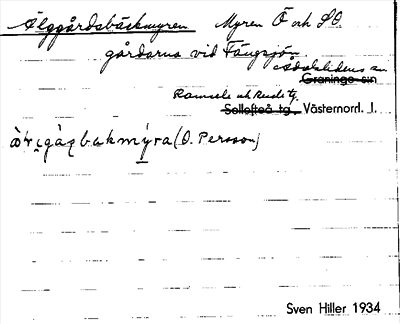 Älggårdsbäckmyren Myren Ö och SO
gårdarna vid Fängsjön
Ådalslidens sn
Graninge sn
Ramsele och Resele tg.
Sollefteå tg. Västernord. l.
(O. Persson)
Sven Hiller 1934